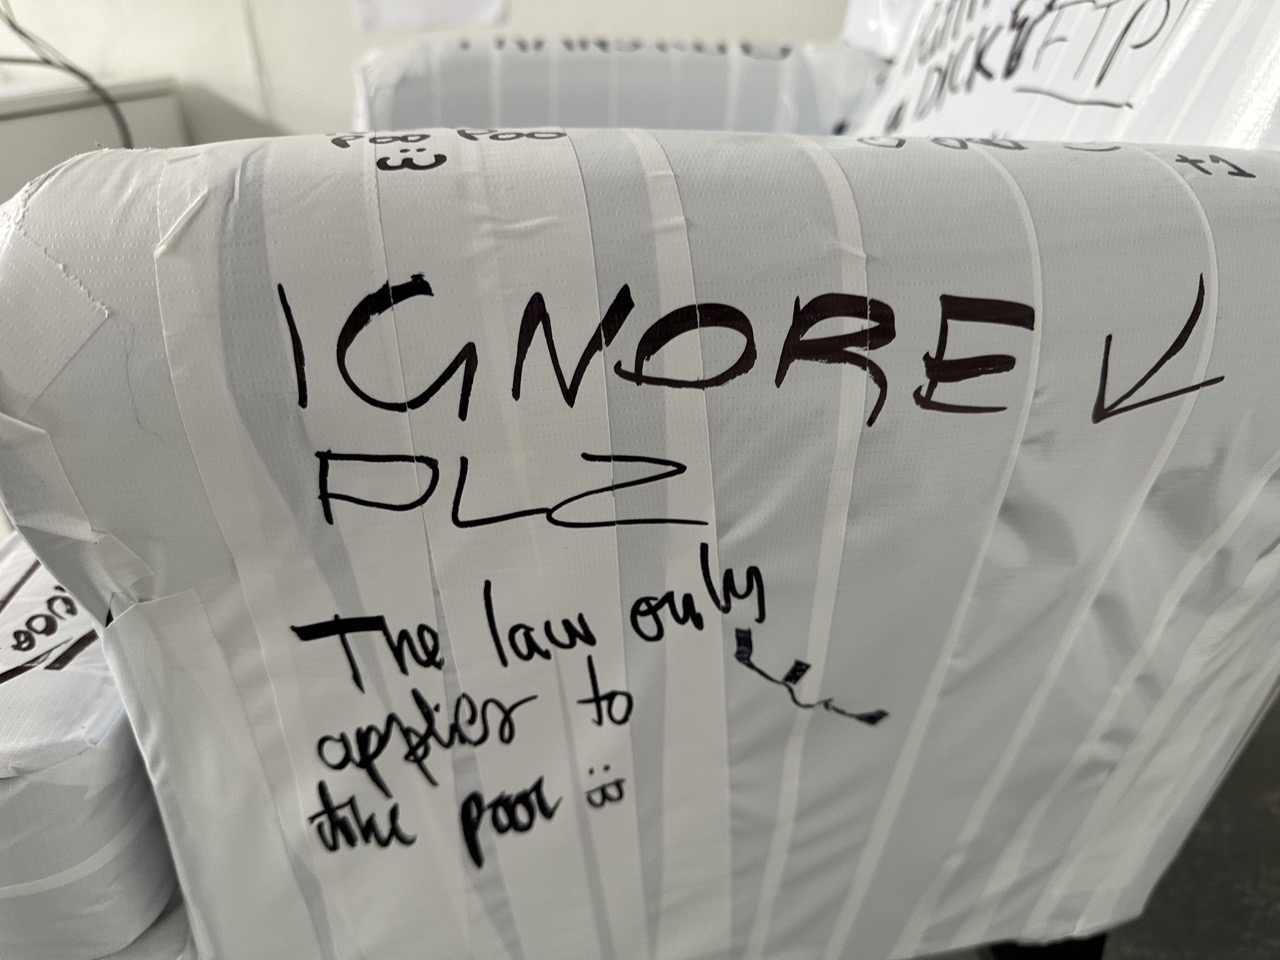 DICK & FTP
Poo Poo
:3
+1
IGNORE ↙
PLZ
The law only
applies to
the poor :3